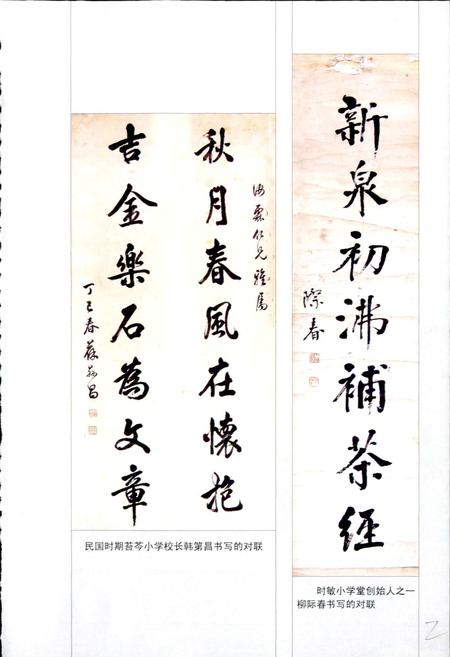 新泉初沸補茶經
際春
秋月春風在懷抱
海粟仁兄雅属
吉金樂石為文章
丁巳春
民国时期苔芩小学校长韩第昌书写的对联
时敏小学堂创始人之一
柳际春书写的对联
2